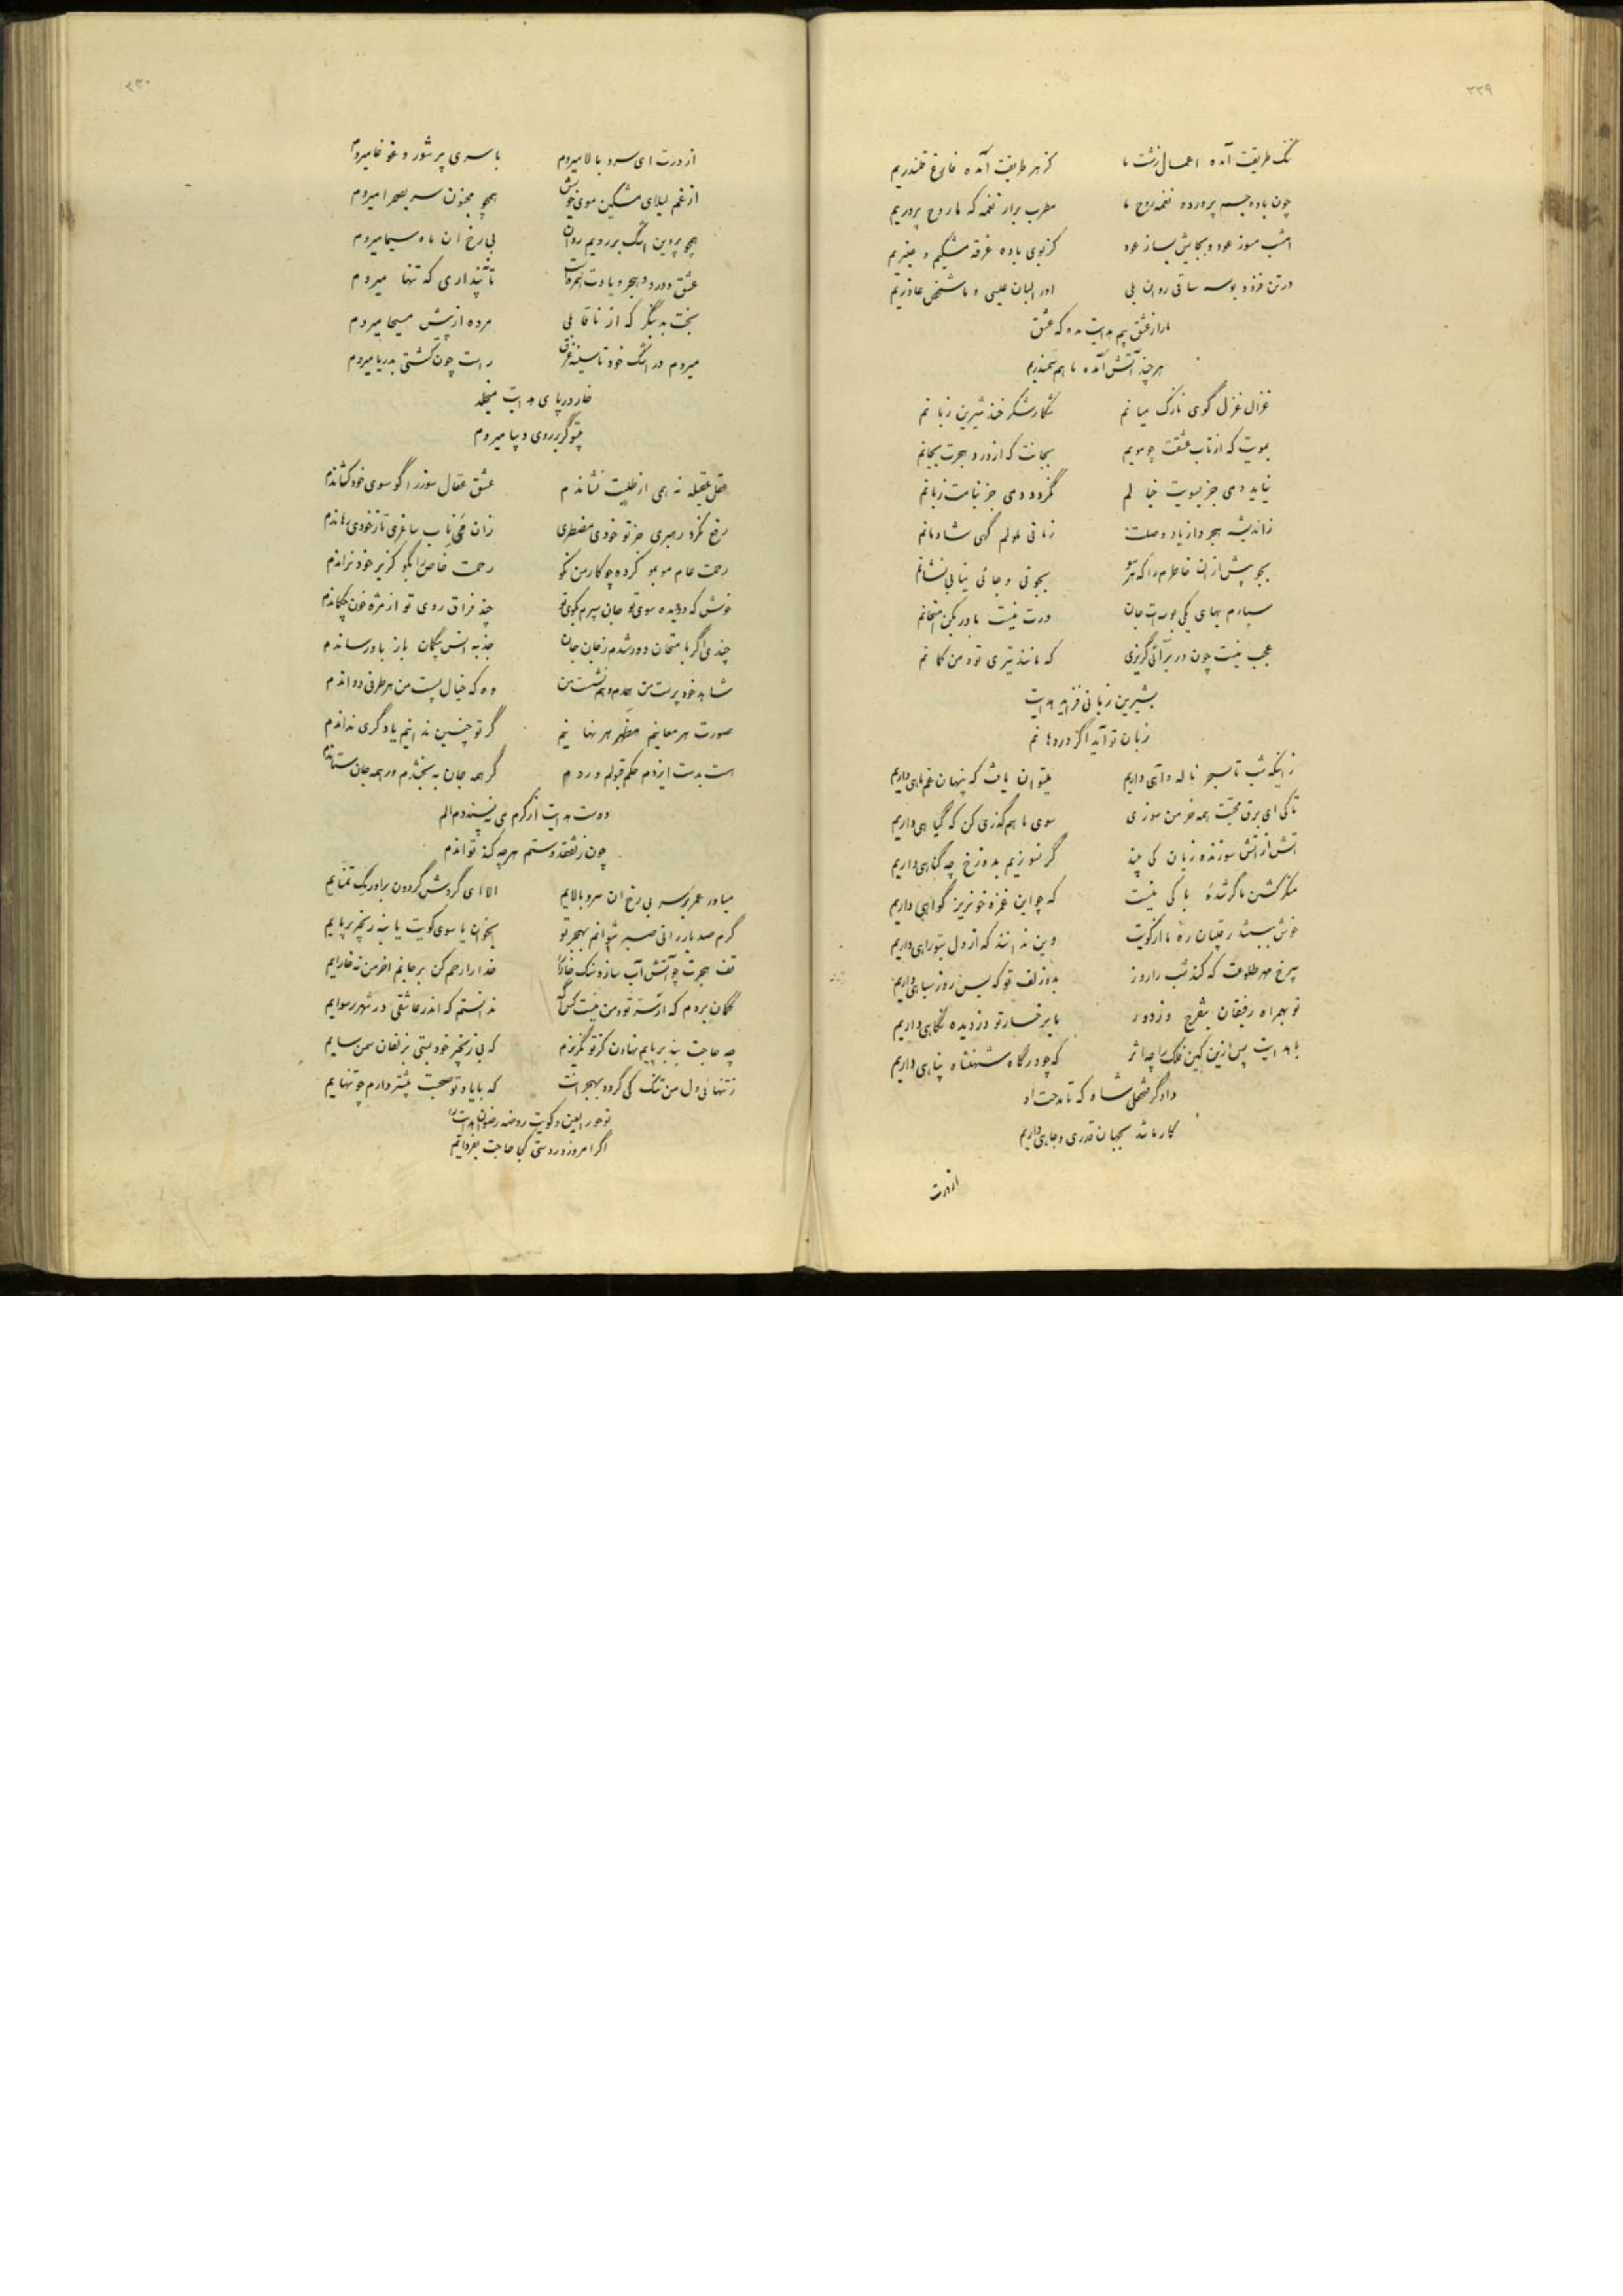 ۳۲۹
ننگ طریقت آمده اعمال زشت ما کز هر طریقت آمده فارغ قلندریم
چون باده جسم پرورده نغمه روح ما مطرب برار نغمه که ما روح پروریم
امشب بسوز عود و بجایش بساز عود کز بوی باده غرقه مشکیم و عنبریم
در تن فزود بوسه ساقی روان بلی او را لبان عیسی و ما شخص عاذریم
ما را ز عشق بیم هدایت مده که عشق
هر چند آتش آمده ما هم سمندریم
غزال غزل گوی نازک میانم نگار شکر خند شیرین زبانم
بمویت که از تاب عشقت چو مویم بجانت که از درد هجرت بجانم
نیاید دمی جز بسویت خیالم نگردد دمی جز بنامت زبانم
ز اندیشه هجر و از یاد وصلت زمانی ملولم گهی شادمانم
بجو پیش از ان خاطرم را که هر سو بجوئی و جائی نیابی نشانم
سپارم بهای یکی بوسه ات جان درت نیست باور بکن امتحانم
عجب نیست چون در بر آئی گریزی که مانند تیری تو و من کمانم
بشیرین زبانی فزاید هدایت
زبان تو آید اگر در دهانم
ز اینکه شب تا بسحر ناله و آهی داریم میتوان یافت که پنهان غم ماهی داریم
تا کی ای برق محبت همه خرمن سوزی سوی ما هم گذری کن که گیاهی داریم
آتش از آتش سوزنده زیان کی بیند گر نسوزیم بدوزخ چه گناهی داریم
منکر کشتن ما گر شدهٔ باکی نیست که چو این غمزه خونریز گواهی داریم
خوش ببستند رقیبان ره ما از کویت وین ندانند که از دل بتو راهی داریم
برخ مهر طلوعت که کند شب را روز بدو زلف تو که بس روز سیاهی داریم
تو بهمراه رفیقان بتفرج وز دور ما برخسار تو دزدیده نگاهی داریم
با هدایت پس ازین کین فلک را چه اثر که چو درگاه شهنشاه پناهی داریم
دادگر فتحعلی شاه که تا مدحت او
کار ما شد بجهان قدری و جاهی داریم
از درت
۳۳۰
از درت ای سرو بالا میروم با سری پر شور و غوغا میروم
از غم لیلای مشکین موی خویش همچو مجنون سر بصحرا میروم
همچو پروین اشک بر رویم روان بی رخ ان ماه سیما میروم
عشق و درد و هجر و یادت همره است تا نپنداری که تنها میروم
بخت بد بنگر که از ناقابلی مرده از پیش مسیحا میروم
میروم در اشک خود تا سینه غرق راست چون کشتی بدریا میروم
خار در پای هدایت میخلد
بیتو گر بر روی دیبا میروم
عقل عقیله نه همی از طلبت نشاندم عشق عقال سوز را گو سوی خود کشاندم
رخ نکرد رهبری جز تو خودی مضطری زان می ناب ساغری تا ز خودی رهاندم
رحمت عام مو بمو کرده چو کار من نکو رحمت خاص را بگو کز بر خود نراندم
خوش که دو دیده سوی تو جان سپرم بکوی تو چند فراق روی تو از مژه خون چکاندم
چندی اگر بامتحان دور شدم ز جان جان جذبه انس بیگمان باز باو رساندم
شاهد خود پرست من همدم و هم نشست من وه که خیال پست من هر طرفی دواندم
صورت هر معانیم مظهر هر نهانیم گر تو چنین ندانیم یا دگری نداندم
هست بدست ایزدم حکم قبولم و ردم گر همه جان به بخشدم ور همه جان ستاندم
دوست هدایت از کرم می نپسندد الم
چون ز شفقت و ستم هر چه کند تواندم
میادر عمر بر سر بی رخ ان سرو بالایم الا ای گردش گردون براور یک تمنایم
گرم صد بار رانی صبر نتوانم بهجر تو بخوان یا سوی کویت یا بنه زنجیر بر پایم
تف هجرت چو آتش آب سازد سنگ خارا را خدا را رحم کن بر جانم اخر من نه خارایم
گمان بردم که از سر تو و من نیست کس آگه ندانستم که اندر عاشقی در شهر رسوایم
چه حاجت بند بر پایم نهادن کز تو نگریزم که بی زنجیر خود بستی بزلفان سمن سایم
ز تنهائی دل من تنگ کی گردد بهجرانت که با یاد تو صحبت بیشتر دارم چو تنهایم
تو حور العین و کویت روضه رضوان هدایت را
اگر امروز در دستی کجا حاجت بفردایم